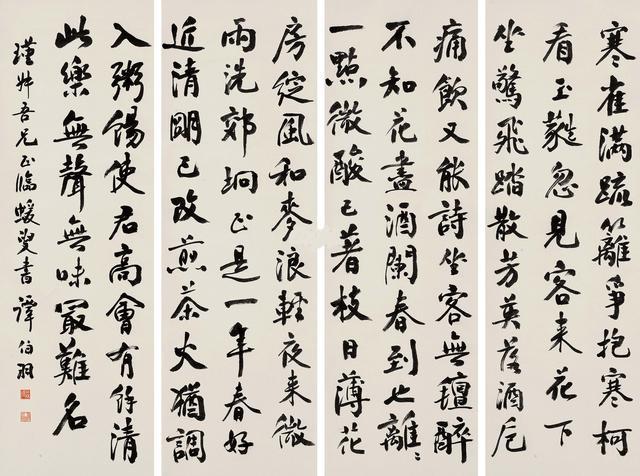 寒雀滿疏籬爭抱寒柯
看玉蕤忽見客来花下
坐驚飛踏散芳英落酒卮
痛飲又能詩坐客無氈醉
不知花盡酒闌春到也離〻
一點微酸已著枝日薄花
房綻風和麥浪輕夜来微
雨洗郊坰正是一年春好
近清明已改煎茶火猶調
入粥餳使君高會有餘清
此樂無聲無味最難名
瑾叔吾兄正臨蝯叟書 譚伯羽